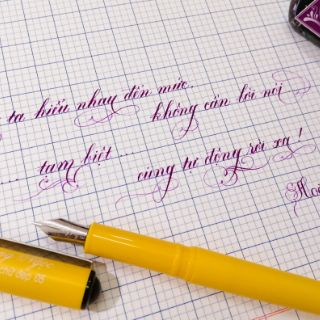 ta hiểu nhay đến mức.
không cần lời nói
... tạm biệt ...
cũng tự động rời xa !